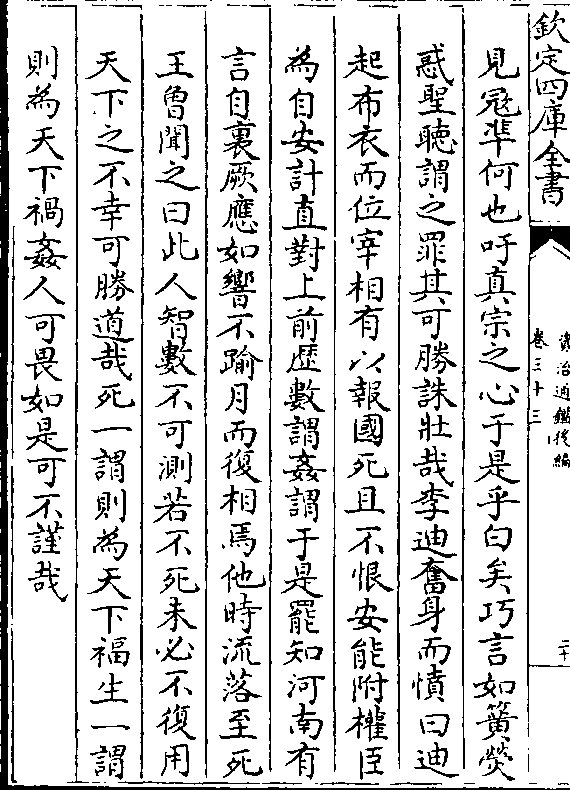 欽定四庫全書
資治通鑑後編
卷三十三
二十
見寇準何也吁真宗之心于是乎白矣巧言如簧熒
惑聖聽謂之罪其可勝誅壯哉李迪奮身而憤曰迪
起布衣而位宰相有以報國死且不恨安能附權臣
為自安計直對上前歴數謂姦謂于是罷知河南有
言自裏厥應如響不踰月而復相焉他時流落至死
王曾聞之曰此人智數不可測若不死未必不復用
天下之不幸可勝道哉死一謂則為天下福生一謂
則為天下禍姦人可畏如是可不謹哉